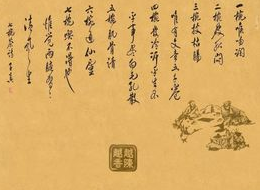 一碗喉吻润
二碗破孤闷
三碗搜枯肠
唯有文字五千卷
四碗发轻汗平生不
平事尽向毛孔散
五碗肌骨清
六碗通仙灵
七碗吃不得也
惟觉两腋习习
清风生
七碗茶诗
越陳越香